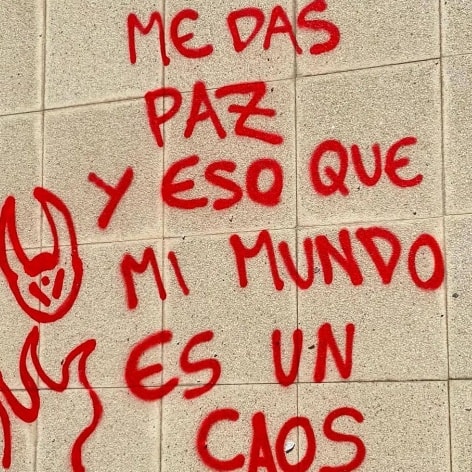 ME DAS
PAZ
Y ESO QUE
MI MUNDO
ES UN
CAOS